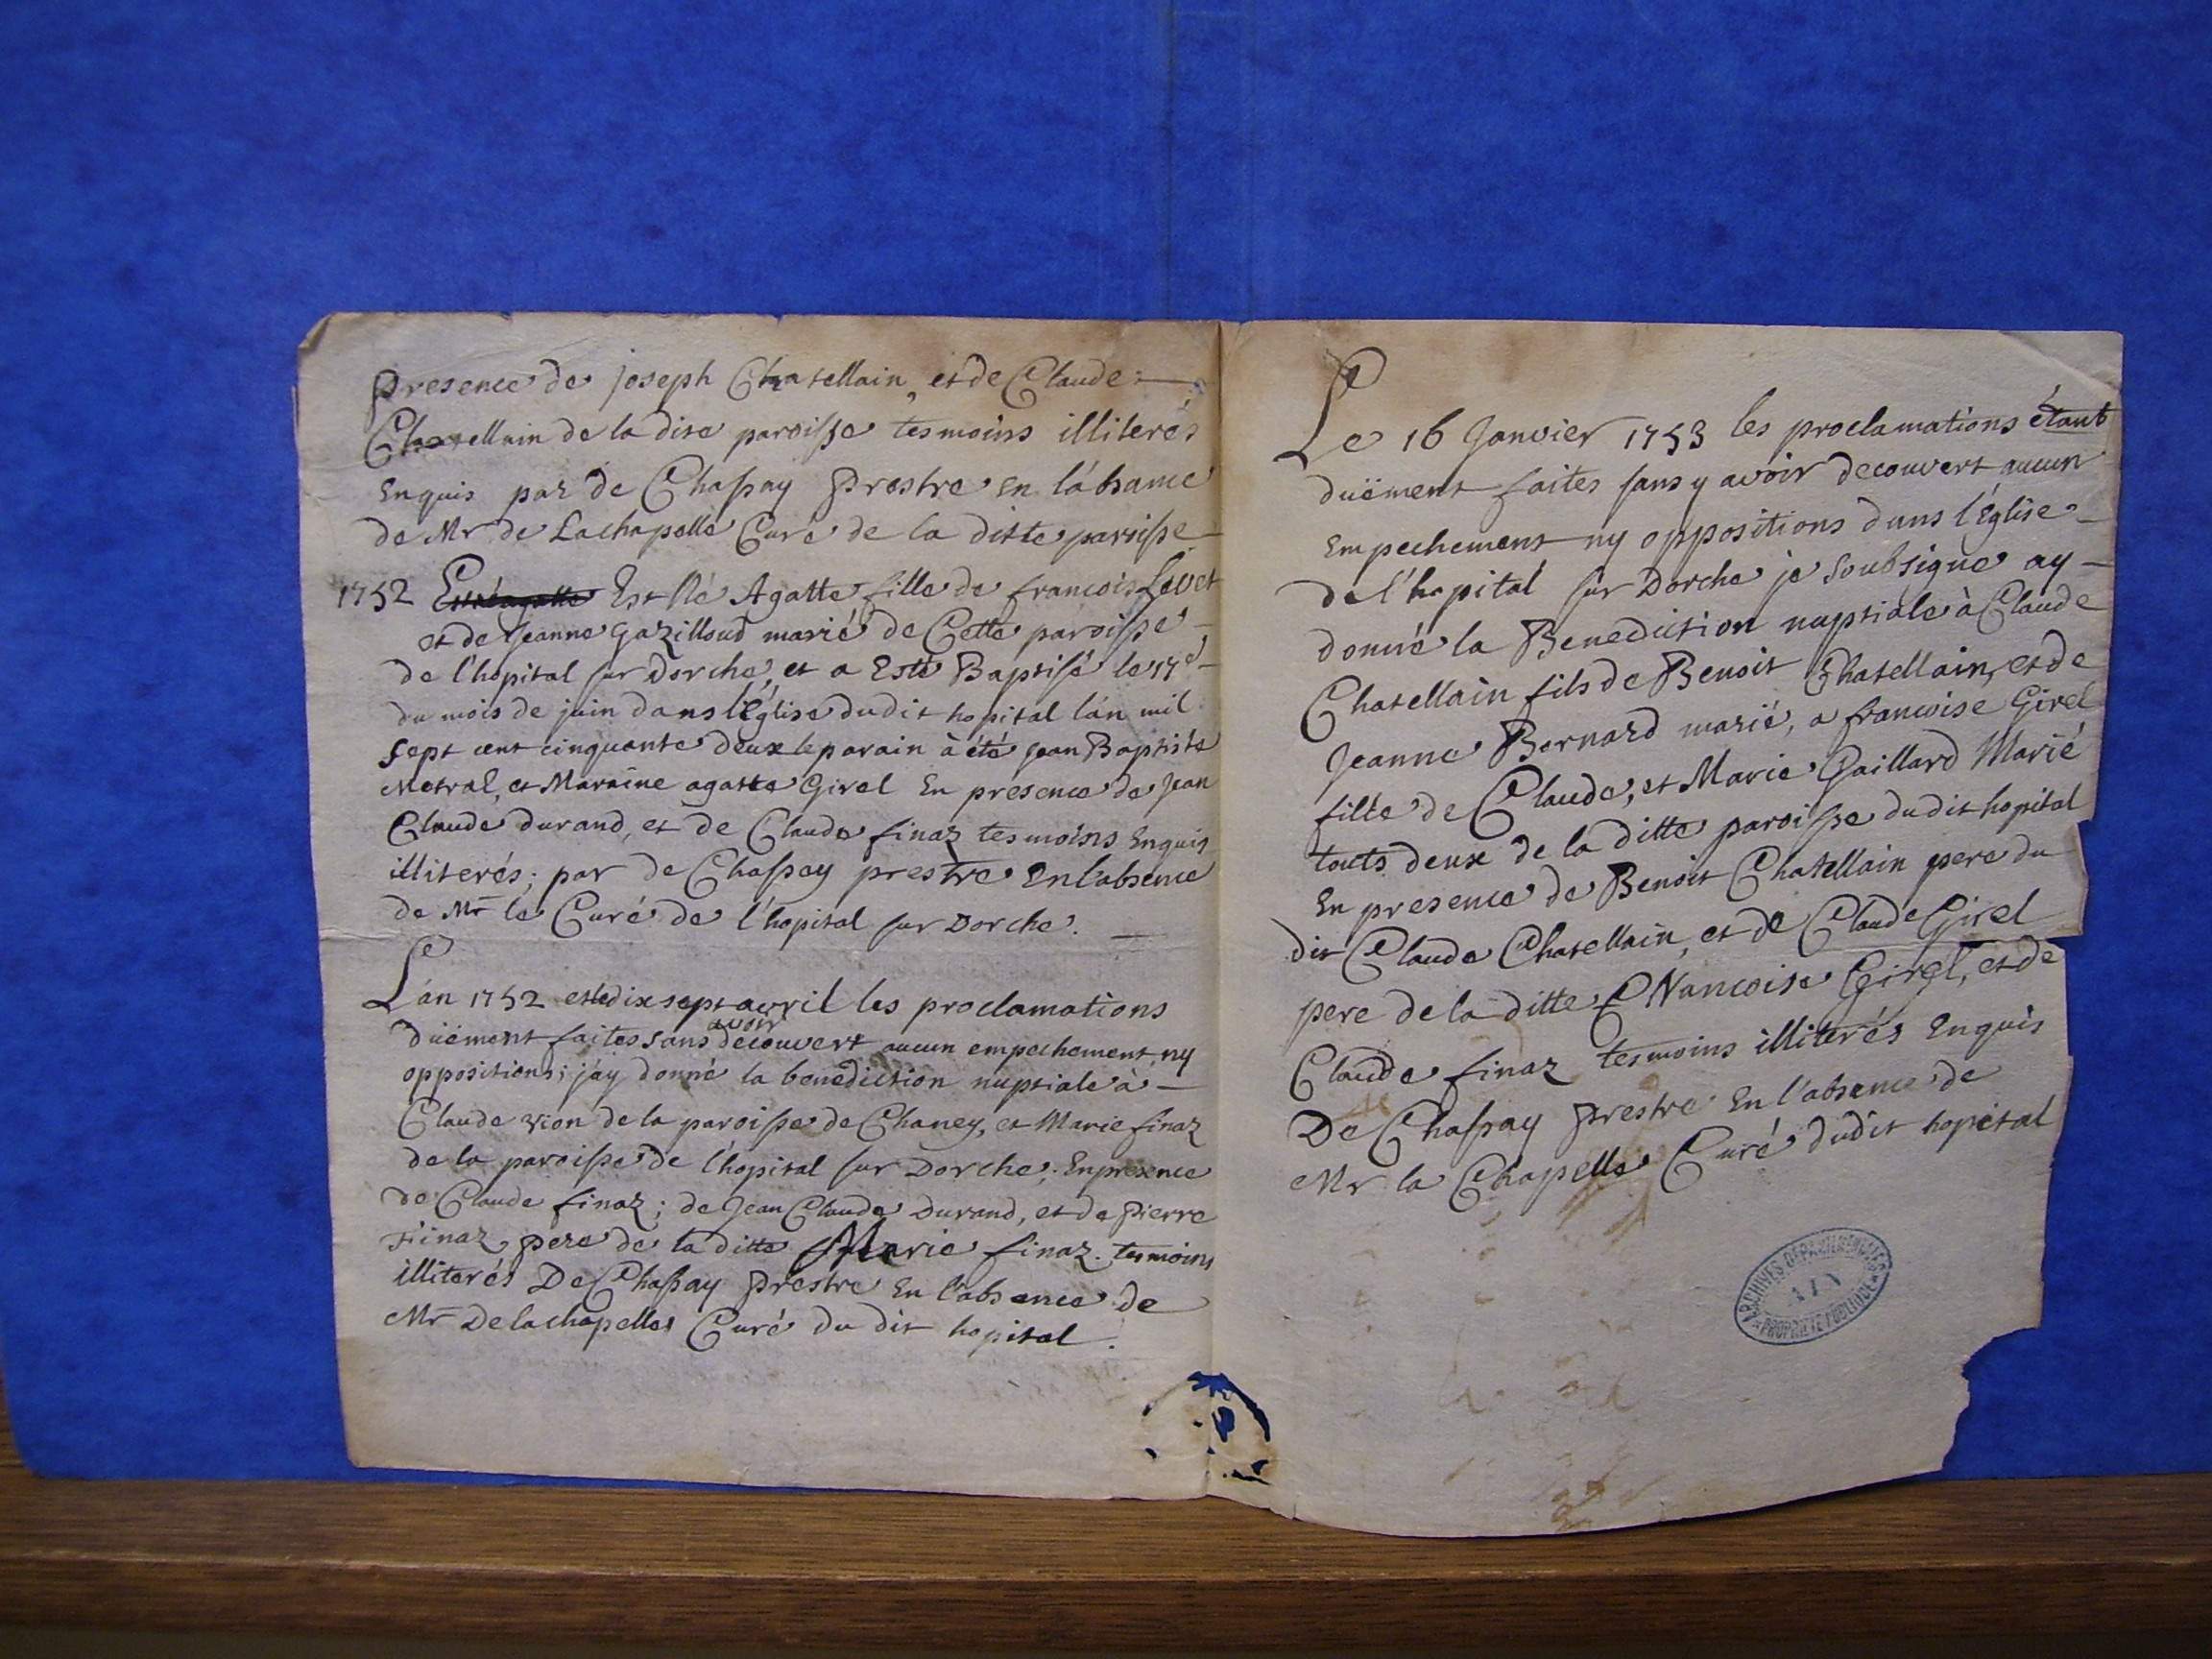 presence de joseph Chatellain, et de Claude
Chatellain de la dite paroisse tesmoins illiterés
Enquis par de Chassay prestre en l'absance
de Mr de Lachapelle Curé de la ditte paroisse
1752 Est Né Agatte fille de francois Levet
et de Jeanne gazilloud marié de Cette paroisse
de l'hopital sur Dorche, et a Esté Baptisé le 17e
du mois de juin dans l'Église dudit hopital l'an mil
sept cent cinquante deux le parain à été jean Baptiste
Metral, et Maraine agatte Girel En presence de Jean
Claude durand, et de Claude finaz tesmoins Enquis
illiterés; par de Chassay prestre En l'absence
de Mr le Curé de l'hopital sur Dorche.
L'an 1752 et le dix sept avril les proclamations
düement faites sans avoir decouvert aucun empechement ny
oppositions; j'ay donné la benediction nuptiale à
Claude vion de la paroisse de Chaney, et Marie finaz
de la paroisse de l'hopital sur Dorche; En presence
de Claude finaz; de Jean Claude Durand, et de Pierre
finaz pere de la ditte Marie finaz. tesmoins
illiterés De Chassay prestre En l'absence de
Mr De lachapelles Curé du dit hopital.
Le 16 Janvier 1753 les proclamations étant
duëment faites sans y avoir decouvert aucun
Empechement ny oppositions dans l'Église
de l'hopital sur Dorche je soubsigne ay
donné la Benediction nuptiale à Claude
Chatellain fils de Benoit Chatellain, et de
Jeanne Bernard marié, a francoise Girel
fille de Claude, et Marie Gaillard Marié
touts deux de la ditte paroisse dudit hopital
En presence de Benoit Chatellain pere du
dit Claude Chatellain, et de Claude Girel
pere de la ditte francoise Girel, et de
Claude finaz tesmoins illiterés Enquis
De Chassay prestre En l'absence de
Mr la Chapelle Curé dudit hopital
ARCHIVES DEPARTEMENTALES
AIN
PROPRIETE PUBLIQUE